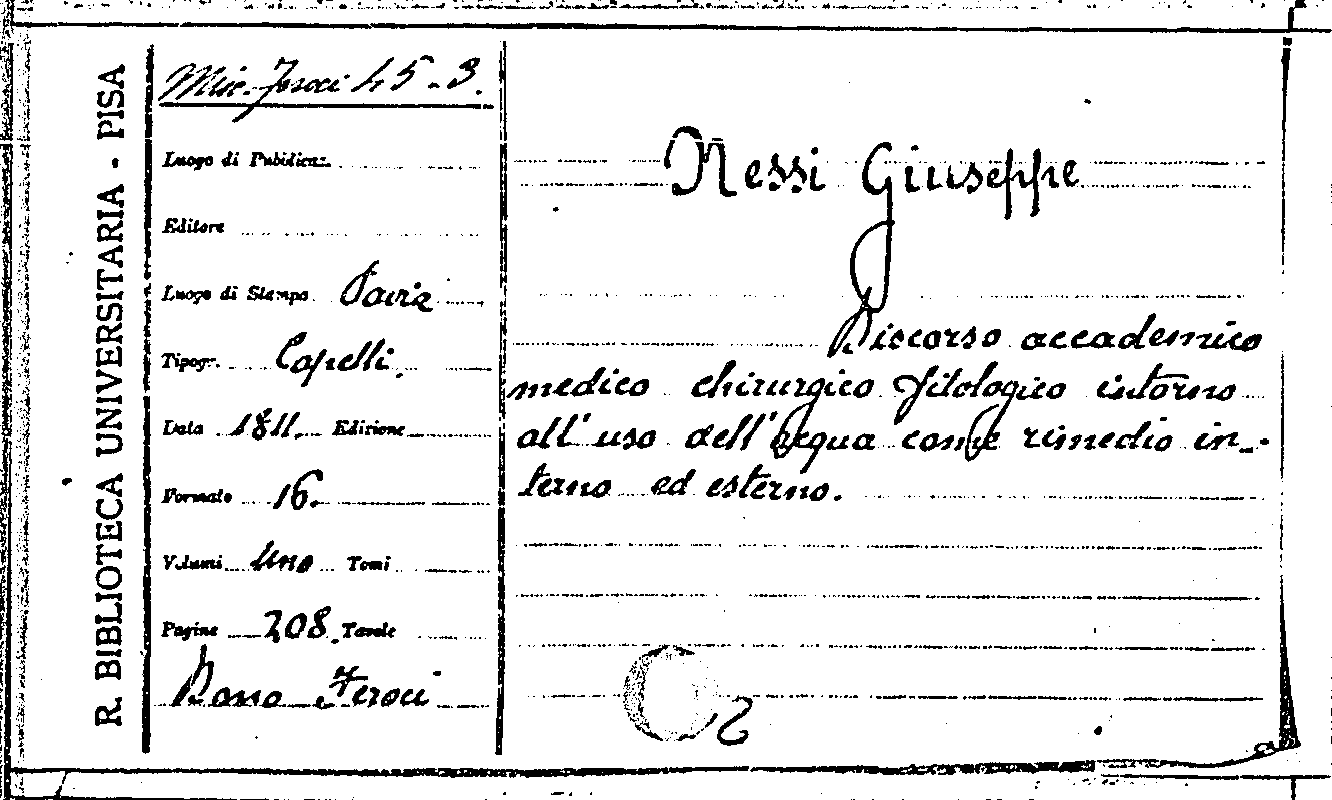 R. BIBLIOTECA UNIVERSITARIA - PISA
Misc. Feroci 45-3.
Luogo di Pubblicaz.
Editore
Luogo di Stampa Pavia
Tipogr. Capelli.
Data 1811. Edizione
Formato 16.
Volumi Uno Tomi
Pagine 208. Tavole
Dono Feroci
Nessi Giuseppe
Discorso accademico
medico chirurgico fitologico intorno
all'uso dell'acqua come rimedio in-
terno ed esterno.